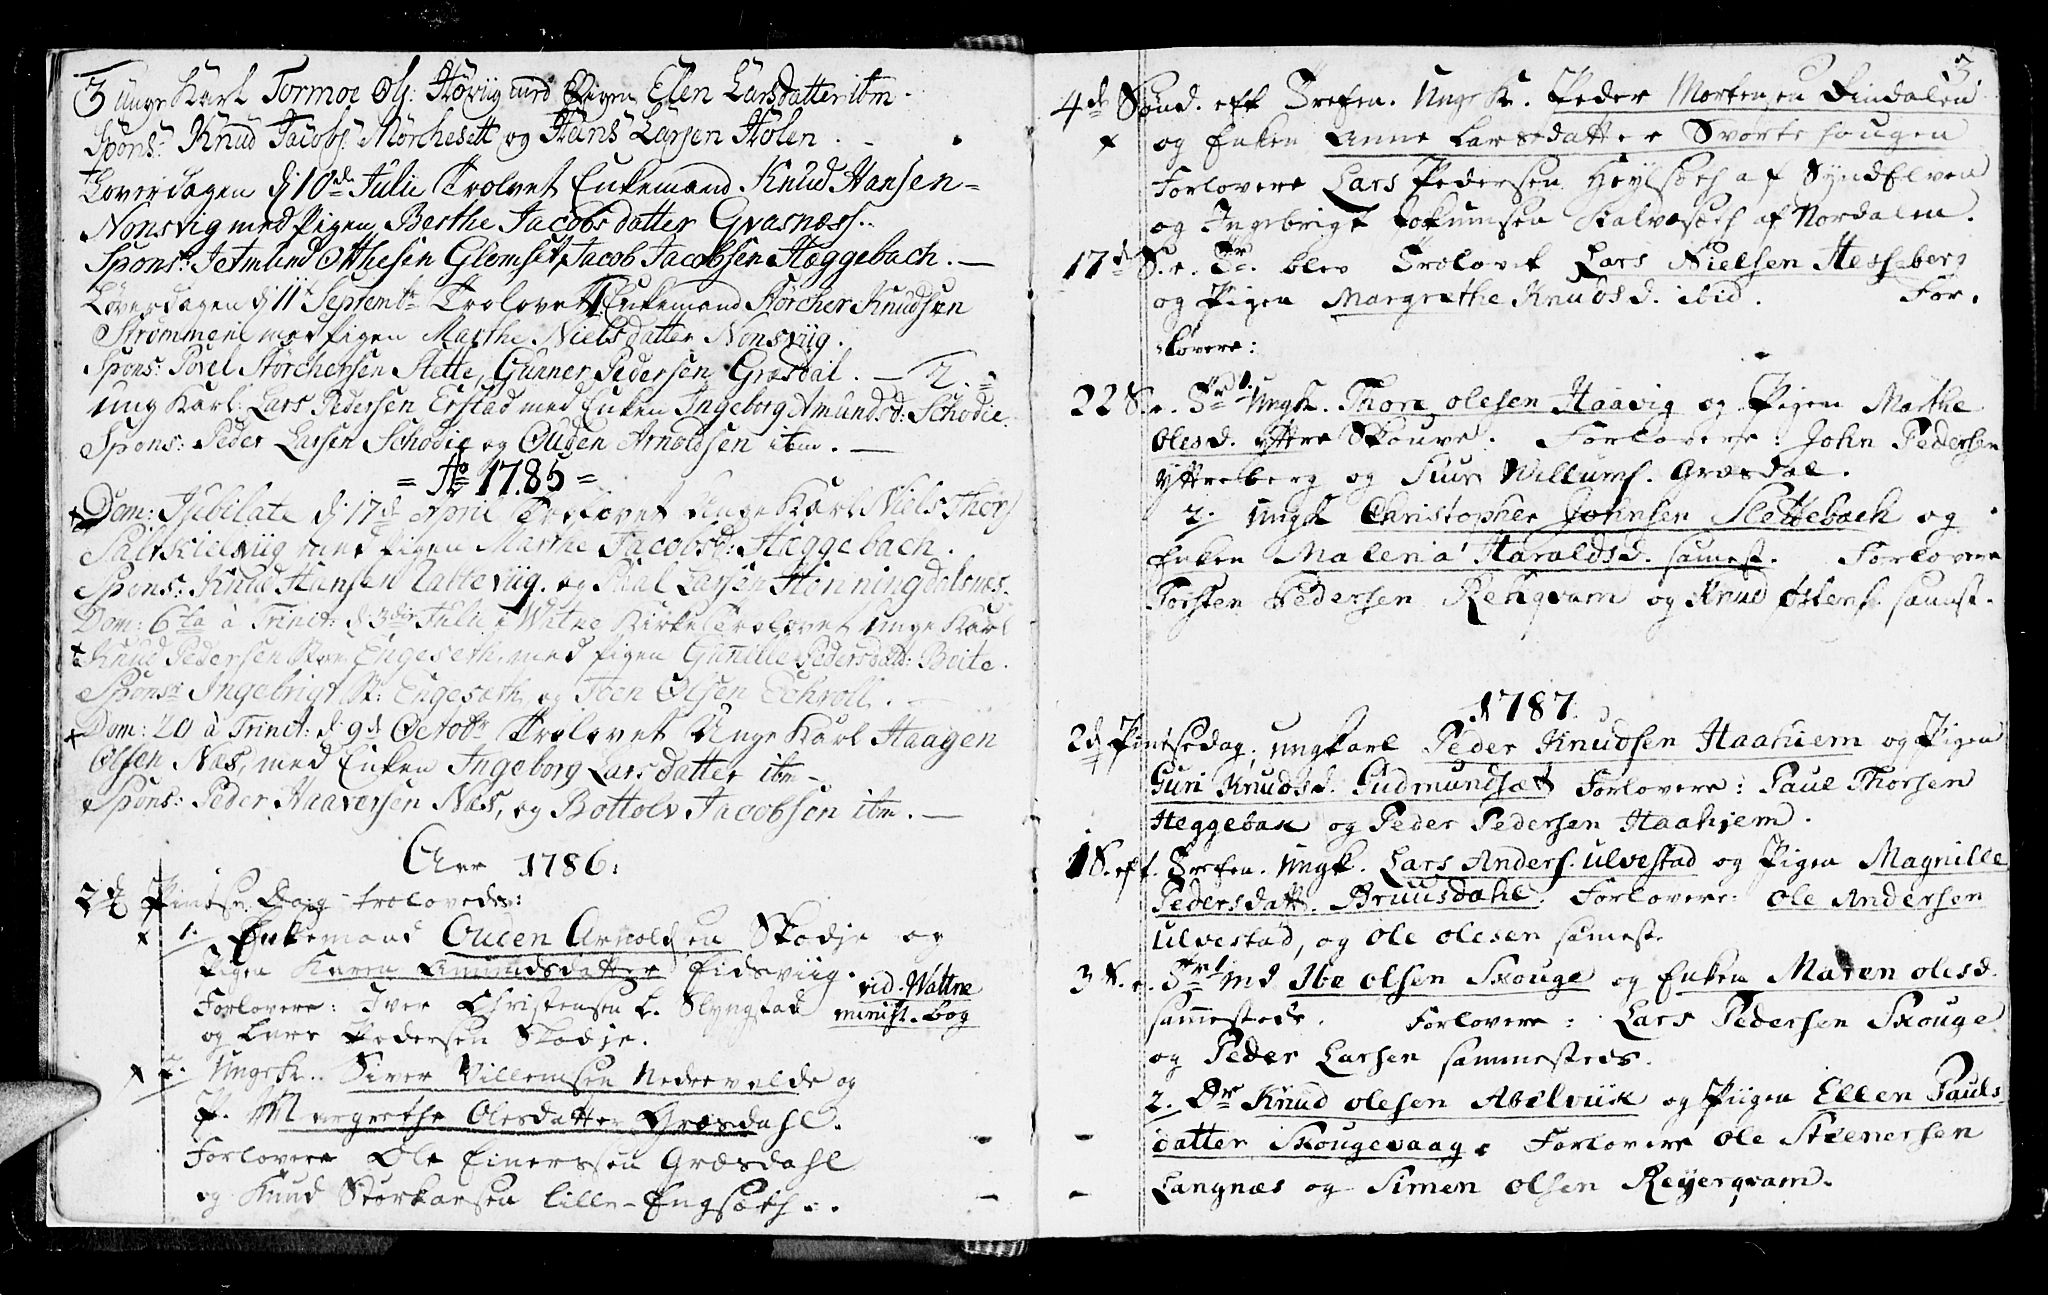 3 unge Karl Tormoe Ols: Høvig med Pigen Elen Larsdatter ibm.
Spons: Knud Jacobs: Mørchesett og Hans Larsen Holen.
Løverdagen d 10de Julii Trolovet Enkemand Knud Hansen
Nonsvig med Pigen Berthe Jacobsdatter Gvasnæss.
Spons: Jetmund Otthesen Glomset, Jacob Jacobsen Hæggebach.
Løverdagen d 11te Septembr Trolovet 1. Enkemand Storcher Knudsen
Strømmen med Pigen Marthe Nielsdatter Nonsviig.
Spons: Povel Storchersen Stette, Gunner Pedersen Græsdal. 2.
ung Karl: Lars Pedersen Erstad med Enken Ingeborg Amund.d: Schodie.
Spons: Peder Larsen Schodie og Ouden Arnoldsen ibm.
= Ao 1785 =
Dom: Jubilate d: 17de April Trolovet Unge Karl Niels Thors
med Pigen Marthe Jacobsd: Hæggebach.
Spons: Knud Hansen Tableviig og Paul Larsen Honningdalsnes.
Dom: 6ta à Trinit: d 3die Julii i Watne Kirke Trolovet unge Karl
Knud Pedersen Engeseth med Pigen Gunilie Pedersdatt: Boite.
Spons: Ingebrigt P: Engeseth og Joen Olsen Echroll.
Dom: 20 à Trinit: d 9de Octobr Trolovet Unge Karl Haagen
Olsen Næs, med Enken Ingeborg Larsdatter ibm
Spons: Peder Haaversen Næs, og Bottolv Jacobsen ibm.
Aar 1786:
2d Pintse Dag trolovede:
1. Enkemand Ouden Arnoldsen Skodje og
Pigen Karen Amundsdatter Eidsviig.
Forlovere: Iver Christensen L. Slyngstad
vid. Watne
minist. bog
og Lars Pedersen Skodje.
2. Ungek. Siver Villemsen Nedrevolde og
P. Margrethe Olesdatter Græsdahl.
Forlovere Ole Einerssen Græsdahl
og Knud Storkarsen Lille-Engsæth.
3
4de Sønd. eft Trefen. Ungek. Peder Mortensen Dindalen
og Enken Anne Larsdatter Svortehougen
Forlovere Lars Pedersen Heylsæth af Syndelven
og Ingebrigt Jokumsen Kalvæsæth af Nordalen.
17de S. e. Tr. blev Trolovet Lars Nielsen Hesseberg
og Pigen Margrethe Knudsd. ibid. For.
lovere:
22 S. e. Tr. 1. Ungk. Thore olesen Haavig og Pigen Marthe
olesd. yttre Skouve. Forlovere: John Pedersen
yttreberg og Siur Willums. Græsdal.
2. Ungk Christopher Johnsen Slettebach og
Enken Malena Haraldsd. sammest. Forlovere
Torsten Pedersen Rekqvam og Knud Østens. sammest.
1787.
2d Pintsedag, ungkarl Peder Knudsen Haahiem og Pigen
Guri Knudsd. Gudmundsæt Forlovere: Paul Thorsen
Heggebak og Peder Pedersen Haahjem.
1 S. eft. Trefen. Ungk. Lars Anders. Ulvestad og Pigen Magnille
Pedersdatt. Bruusdahl. Forlovere: Ole Andersen
Ulvestad, og Ole olesen sammest.
3 S. e. Tr. 1 md Ibe olsen Skouge og Enken Maren olesd.
sammestede. Forlovere: Lars Pedersen Skouge
og Peder Larsen sammesteds.
2. Dr Knud olesen Abelviik og Piigen Ellen Pauls
datter Skougevaag. Forlovere Ole Stenersen
Langnæs og Simen olsen Reyerqvam.